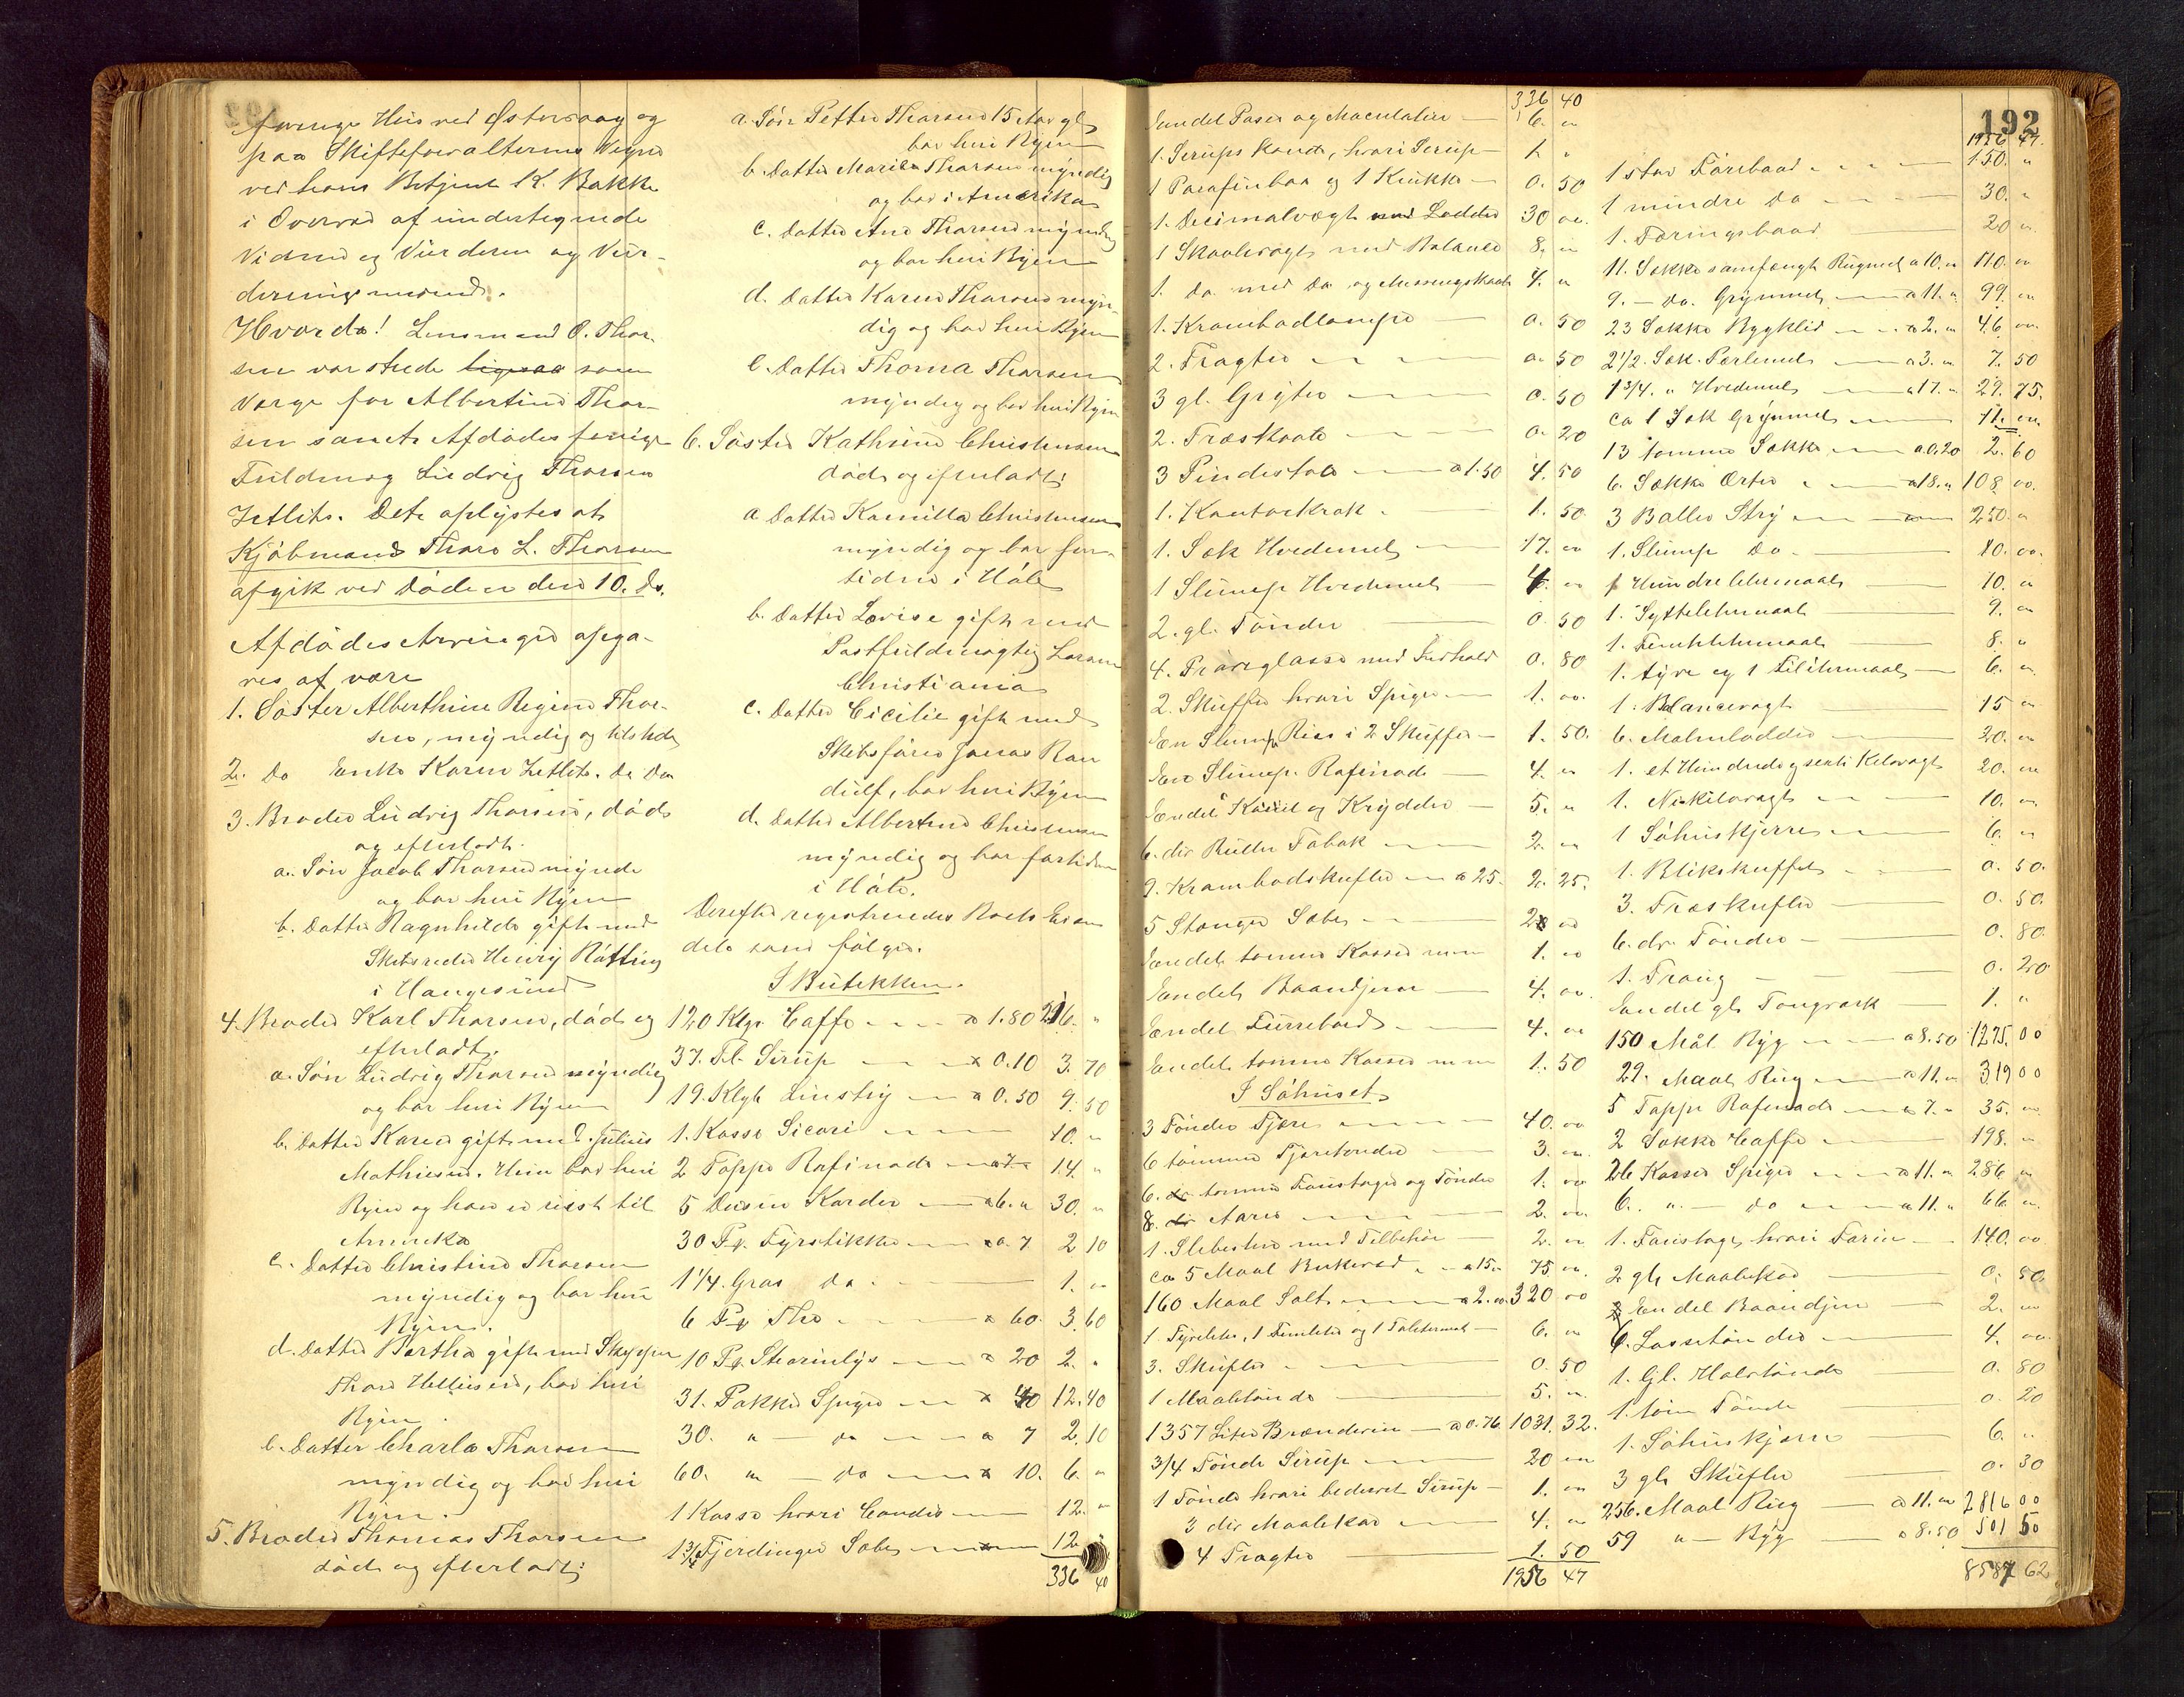 192
Hus ved Østervaag og
paa Skifteforvalterens Vegne
ved hans Betjent K. Bakke
i Overvær af undertegnede
Vidner og Vurderere og Vur-
deringsmænd.
Hvorda! Lensmand O. Thor-
sen var stede ligesaa som
Værge for Albertine Thor-
sen samt Afdødes forrige
Fuldmæg Ludvig Thorsen
Zetlitz. Det oplystes at
Kjøbmand Thore L. Thorsen
afgik ved Døden den 10. Ds.
Afdødes Arvinger opga-
ves at være
1. Søster Alberthine Regine Thor-
sen, myndig og tilstede
2. Do Enke Karen Zetlitz. Do Do
3. Broder Ludvig Thorsen, død
og efterladt.
a. Søn Jacob Thorsen myndig
og bor her i Byen
b. Datter Ragnhilde gift med
Skibsreder Henry
i Haugesund
4. Broder Karl Thorsen, død og
efterladt.
a. Søn Ludvig Thorsen myndig
og bor her i Byen
b. Datter Karen gift med Julius
Mathiesen. Hun bor her i
Byen og han er reist til
Amerika
c. Datter Christine Thorsen
myndig og bor her i
Byen.
d. Datter Bertha gift med Skipper
Thore Helliesen, bor her i
Byen.
e. Datter Charla Thorsen
myndig og bor her i
Byen.
5. Broder Thomas Thorsen
død og efterladt:
a. Søn Petter Thorsen 15 Aar gl.
bor her i Byen
b. Datter Marie Thorsen myndig
og bor i Amerika
c. Datter Ane Thorsen myndig
og bor her i Byen
d. Datter Karen Thorsen myn-
dig og bor her i Byen
e. Datter Thoma Thorsen
myndig og bor her i Byen
6. Søster Kathrine Christensen
død og efterladt:
a. Datter Kamilla Christensen
myndig og bor for-
tiden i Hole
b. Datter Lovise gift med
Postfuldmægtig Larsen
Christiania
c. Datter Cicilie gift med
Skibsfører Jonas Ran
dulf, bor her i Byen
d. Datter Albertine Christensen
myndig og bor fortiden
i Hole.
Derefter registreredes Boets Eien
dele som følger.
I Butikken.
120 Klgr. Caffe a 1.80 216. "
37. Fl. Sirup a 0.10 3.70
19. Klgr. Linstry a 0.50 9.50
1. Kasse Sicori 10. "
2 Toppe Rafinade a 7 " 14. "
5 Dusin Karder a 6. " 30. "
30 Pq. Fyrstikker a 0. 7 2 10
1 1/4. Gros Do. 1. "
6 Pq The a 60. 3.60
10 Pq. Stearinlys a 20 2. "
31. Pakker Spiger a 40 12.40
30. " — Do a 7 2.10
60. " — Do a 10. 6. "
1 Kasse hvori Candis 12. "
1 3/4 Fjerdinger Sæbe 12
336 40
336 40
Endel Poser og Maculatur 6. "
1. Sirups Kande, hvori Sirup 1. "
1 Parafinboa og 1 Krukke 0. 50
1. Decimalvægt med Lodder 30 00.
1 Skaalevægt med Balance 8. "
1. Do. med Do og Messingskaale 4. "
1. Krambodlampe 0. 50
2. Tragter 0. 50
3 gl. Gryter 0. 50
2. Træskaale 0. 20
3 Pindestole a 1.50 4. 50
1. Kontorkrak. 1. 50.
1. Sæk Hvedemel 17. 00
1 Slump Hvedemel 4. "
2. gl. Tønder 0. 50
4. Prøveglasse med Indhold 0. 80
2. Skuffer hvori Spiger 1. 00.
En Slump Riis i 2 Skuffer 1. 50.
En Slump. Rafinade 4. "
Endel Kanel og Krydder 5. "
6. div Ruller Tobak 2. "
9. Krambodskuffer a 25. 2. 25.
5 Stænger Sæbe 2 00
Endel tomme Kasser 1. 00
Endel Baandjern 4. 00.
Endel Furrebord 4. 00
Endel tomme Kasser 1. 50
I Søhuset
3 Tønder Tjære 40. 00
6 tomme Tjæretønder 3. 00.
6. tomme Farinstager og Tønder 1. 00
8. Aarer 2. 00.
1. Slibesten med Tilbehør 2. "
ca 5 Maal Birkeved a 15. " 75 00.
160 Maal Salt. a 2. 00. 320 00
1. Tyveliter, 1 Femliter og 1 Toliterm. 6. "
3. Skufler 0. 50
1 Maaletønde 5. "
1357 Liter Brændevin a 0.76. 1031. 32.
3/4 Tønde Sirup 20 00
1 Tønde hvori bedærvet Sirup 1. 00
3 div Maalekar 4. "
4 Tragter 1. 50
1956 47
1956 47.
1 stor Førebaad 150. "
1 mindre Do 30. "
1. Føringsbaad 20 "
11. Sække samfængt Rugmel a 10. " 110. 00
9. — Do. Grynmel a 11. " 99. 00
23 Sække Bygklid a 2. " 46 00.
2 1/2. Sæk. Perlemel a 3. " 7. 50
1 3/4. " Hvedemel a 17. " 29. 75.
ca 1 Sæk Grynmel 11. 00.
13 tomme Sække a 0,20 2. 60
6. Sække Erter a 18. " 108 00.
3 Baller Stry 250. "
1. Slump Do. 10. 00.
1 Hundreliters maal 10. "
1. 9. "
1. Femtilitermaal 8. "
1. tyve og 1 Tilitermaal 6. "
1. Balancevægt 15 "
6. Malmlodder 20. "
1. et Hundredeogsexti Kilovægt 20. "
1. Nikilovægt 10. "
1 Søhuskjerre 6. "
1. Blikskuffel 0. 50.
3. Træskufler 0. 50.
6. div Tønder 0. 80.
1. Traug 0. 20.
Endel gl. Tougværk 1. "
150 Mål Byg a 8.50 1275.00
29. Maal Rug a 11. " 319 00
5 Toppe Rafinade a 7. " 35. "
2 Sække Caffe 198. "
26 Kasser Spiger a 11. " 286 "
6. " — do a 11. " 66 "
1. Farinstage, hvori Farin 140. 00
2 gl. Maalekar 0. 50
Endel Baandjern 2. "
6. Lossetønder 4. 00.
1. Gl. Halvtønde 0. 80
1. tom Tønde 0. 20
1. Søhuskjerre 6. "
3 gl. Skufler 0. 30
256. Maal Rug a 11. " 2816 00
59 " — Byg a 8.50 501 50
8587 62